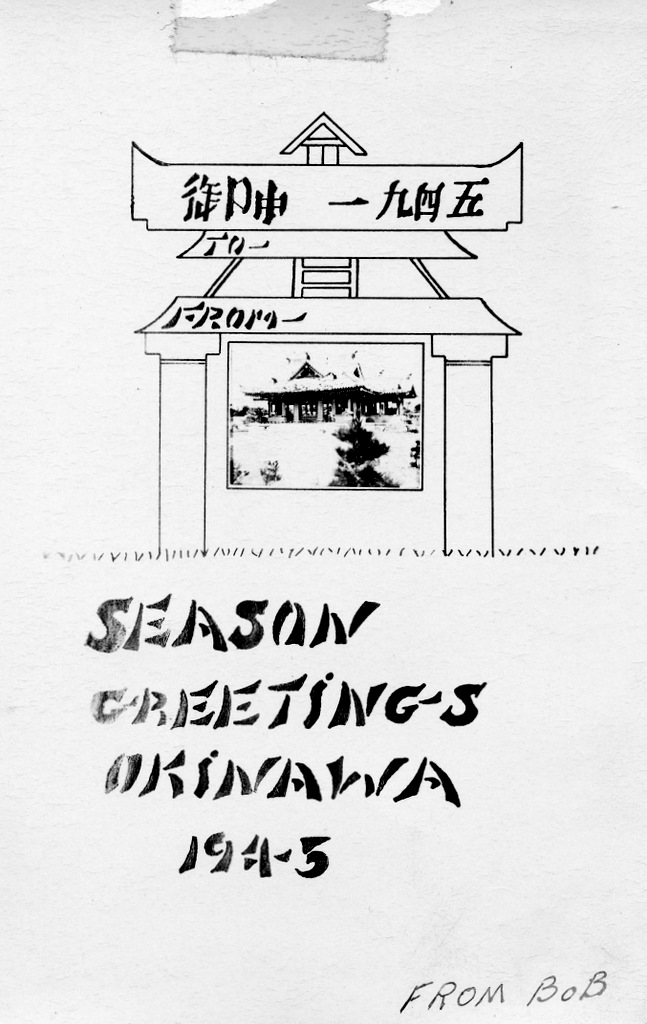 御 一九四五
TO-
FROM-
SEASON
GREETINGS
OKINAWA
1945
FROM BOB